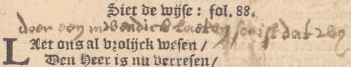 Siet de wijse: fol. 88.
door een inwendich
LAet ons al vrolijck wesen/
Den Heer is nu verresen/